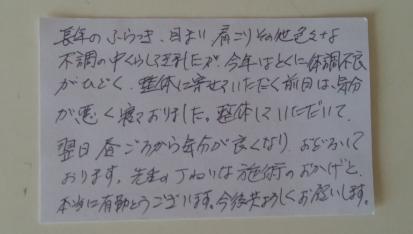 長年のふらつき、目まい肩こりその他色々な
不調の中くらして来ましたが、今年はとくに体調不良
がひどく、整体に寄せていただく前日は、気分
が悪く寝ておりました。整体していただいて、
翌日昼ごろから気分が良くなり、おどろいて
おります。先生の丁ねいな施術のおかげと、
本当に有難とうございます。今後共よろしくお願いします。